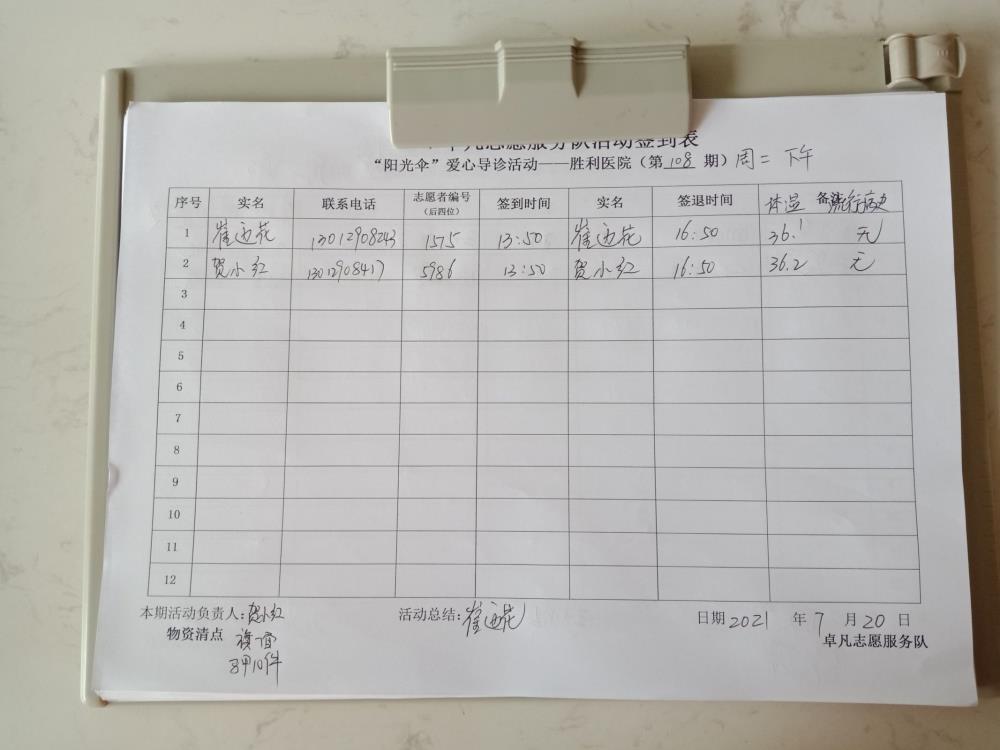 凡志愿服务队活动签到表
“阳光伞”爱心导诊活动——胜利医院（第 108 期）周二 下午
序号 实名 联系电话 志愿者编号（后四位） 签到时间 实名 签退时间 体温 备注 流行病史
1 崔迎花 13012908243 1575 13:50 崔迎花 16:50 36.1 无
2 贺小红 13012908417 5986 13:50 贺小红 16:50 36.2 无
3
4
5
6
7
8
9
10
11
12
本期活动负责人:贺小红 活动总结:崔迎花 日期 2021 年 7 月 20 日
物资清点 旗一面 卓凡志愿服务队
马甲10件